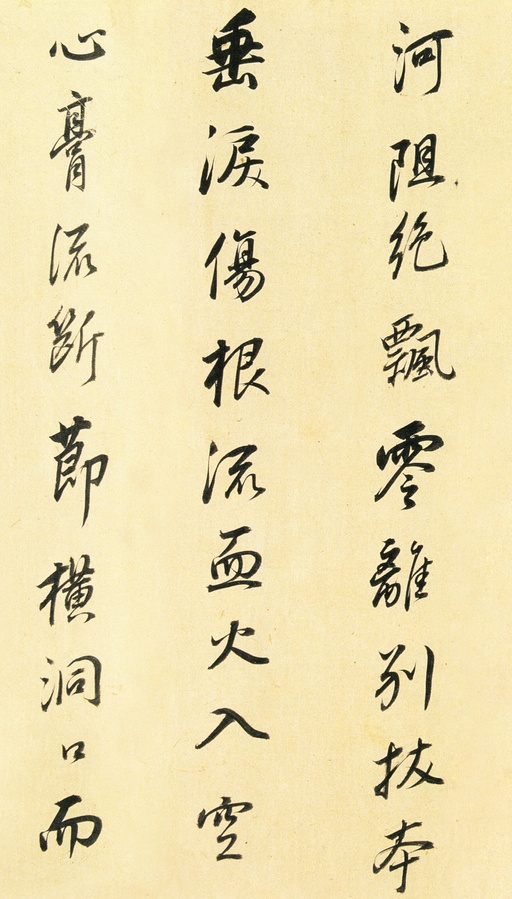 河阻絕飄零離別拔本
垂淚傷根流血火入空
心膏流斷節橫洞口而